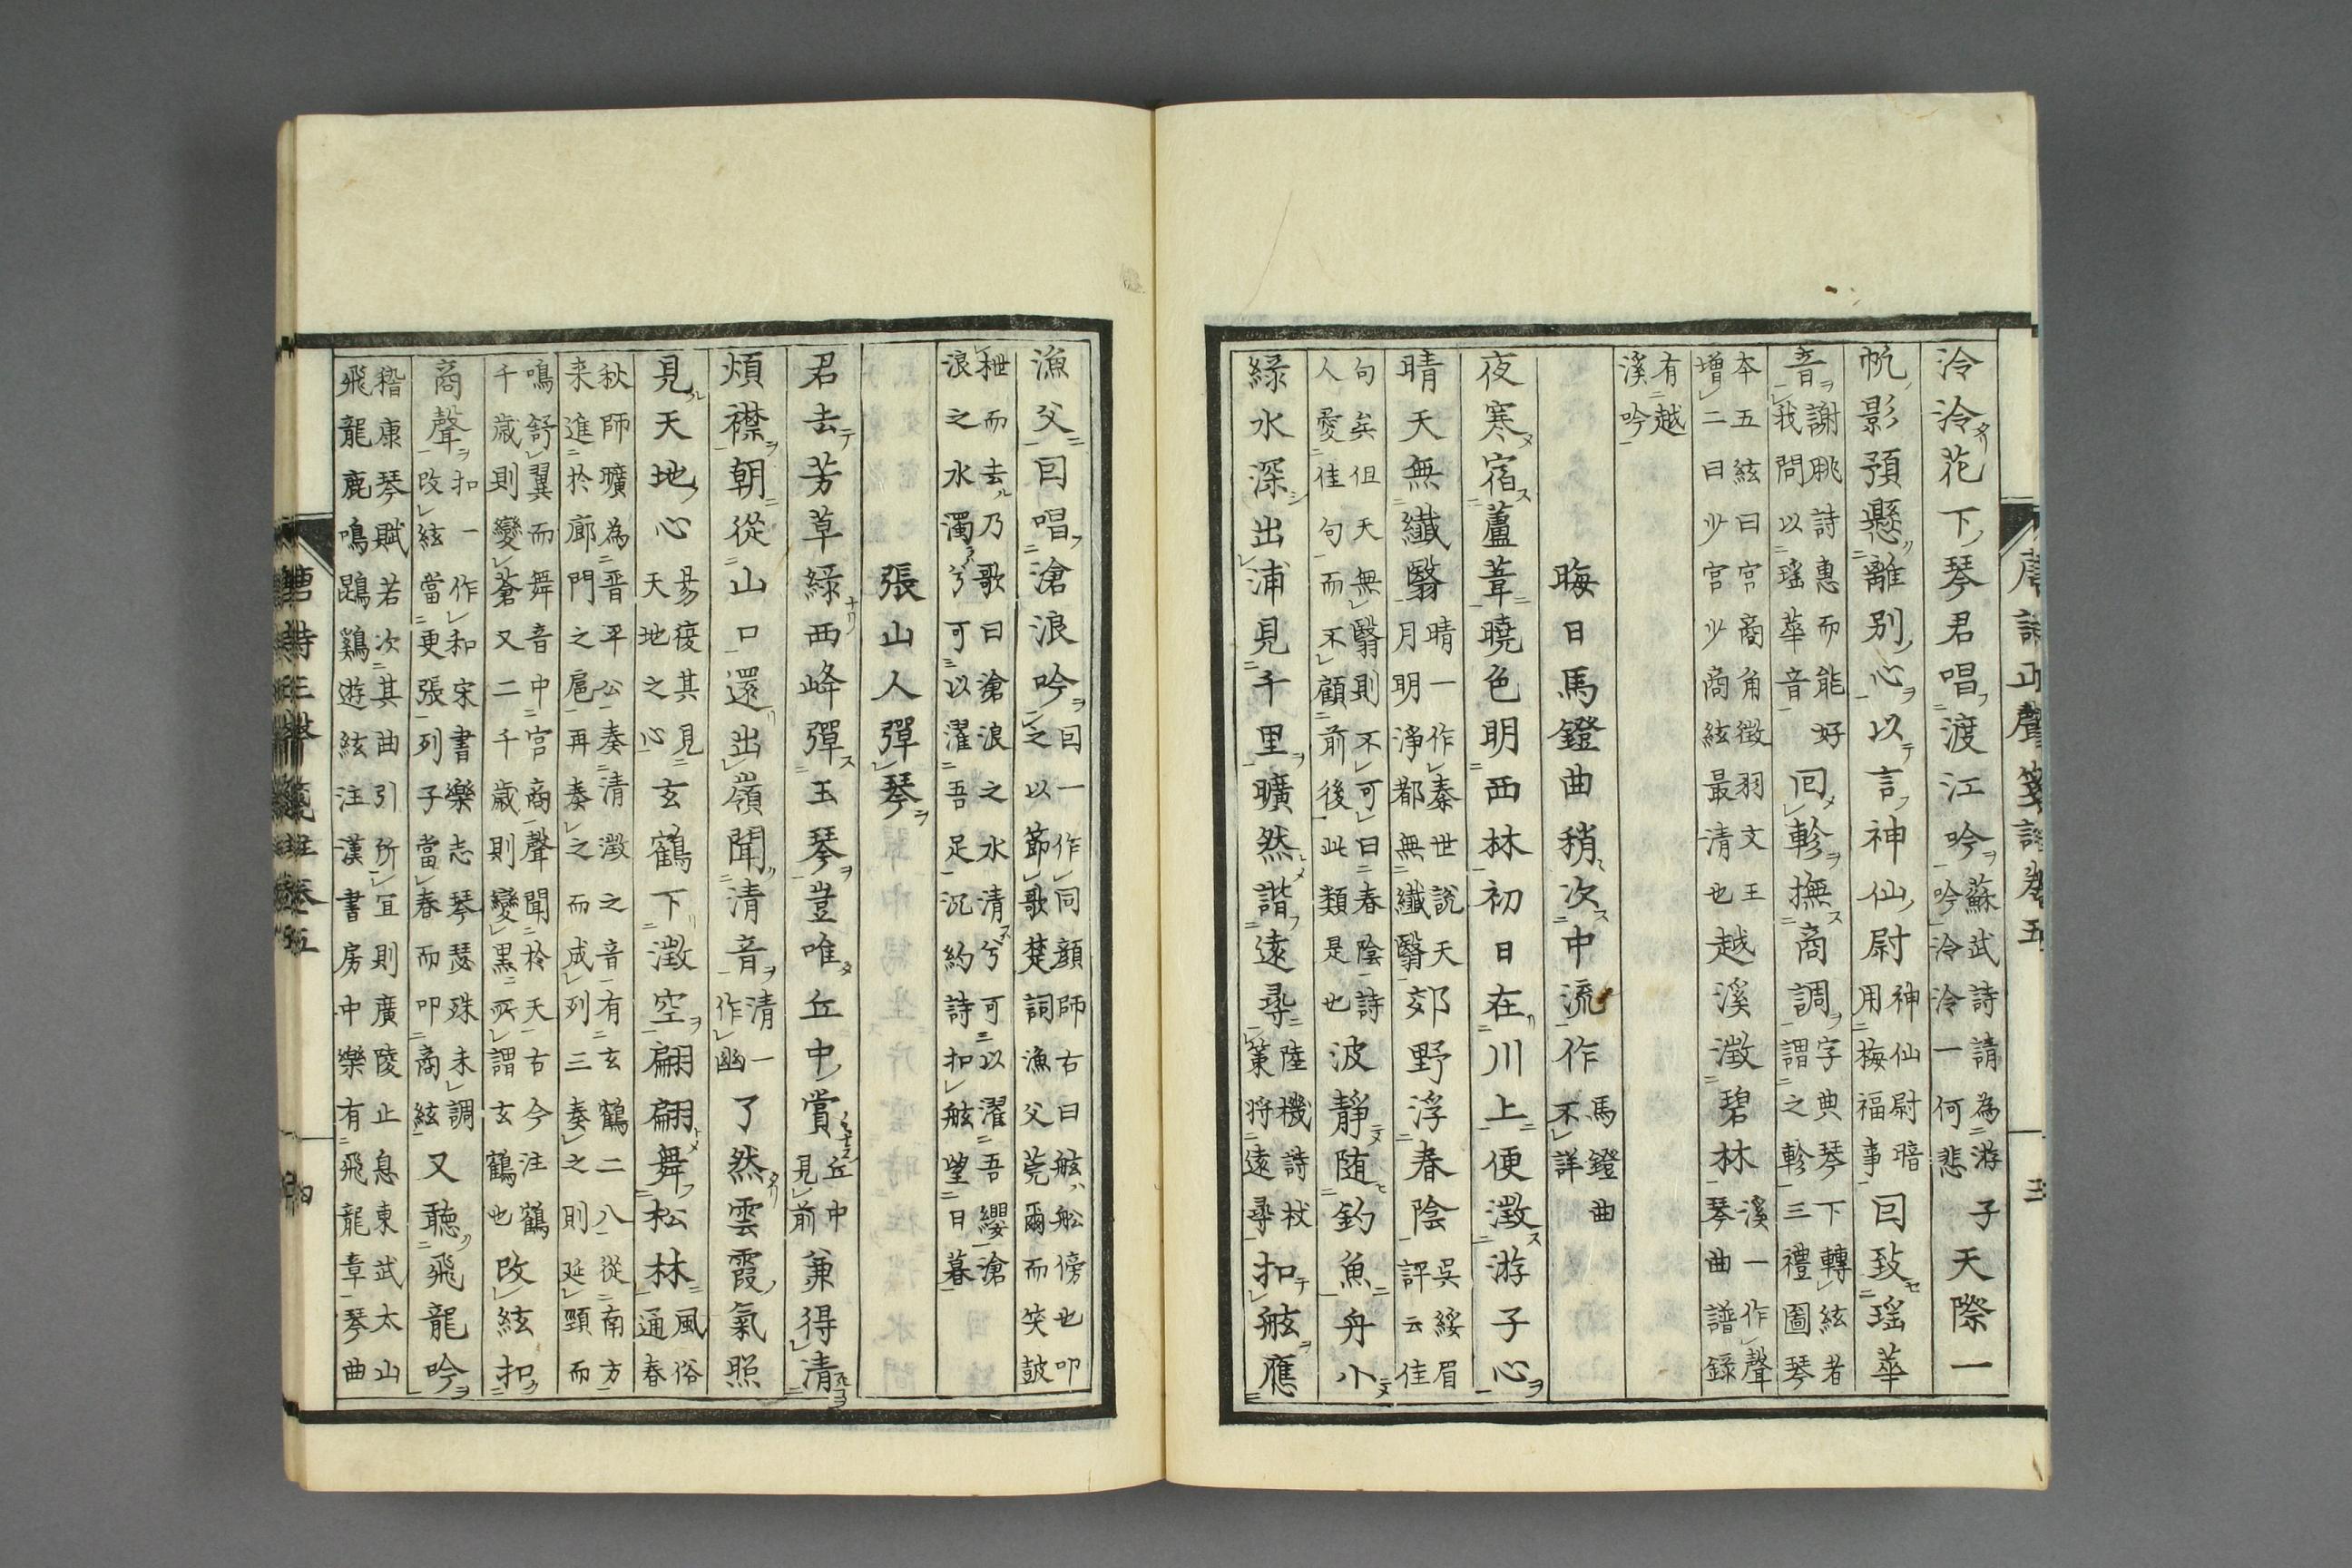 泠泠花下琴君唱渡江吟蘇武詩請為游子吟泠泠一何悲天際一
帆影預懸離別心以言神仙尉神仙尉暗用梅福事回致瑶華
音謝朓詩惠而能好我問以瑶華音回軫撫商調字典琴下轉絃者謂之軫三禮圖琴
本五絃曰宮商角徵羽文王増二曰少宮少商絃最清也越溪澂碧林溪一作聲琴曲譜録
有越溪吟
晦日馬鐙曲稍次中流作馬鐙曲不詳
夜寒宿蘆葦曉色明西林初日在川上便澂游子心
晴天無纖翳晴一作秦世説天月明淨都無纖翳郊野浮春陰吳綏眉評云佳
句矣但天無翳則不可曰春陰詩人愛佳句而不顧前後此類是也波靜随釣魚舟小
緑水深出浦見千里曠然諧遠尋陸機詩杖策将遠尋扣舷應
漁父回唱滄浪吟回一作同顔師古曰舷船傍也叩之以節歌楚詞漁父莞爾而笑鼓
枻而去乃歌曰滄浪之水清兮可以濯吾纓滄浪之水濁兮可以濯吾足沉約詩扣舷望日暮
張山人彈琴
君去芳草緑西峰彈玉琴豈唯丘中賞丘中見前兼得清
煩襟朝從山口還出嶺聞清音清一作幽了然雲霞氣照
見天地心易復其見天地之心玄鶴下澂空翩翩舞松林風俗通春
秋師曠為晋平公奏清澂之音有玄鶴二八從南方来進於廊門之扈再奏之而成列三奏之則延頸而
鳴舒翼而舞音中宮商聲聞於天古今注鶴千歳則變蒼又二千歳則變黒所謂玄鶴也改絃扣
商聲扣一作和宋書樂志琴瑟殊未調改絃當更張列子當春而叩商絃又聴飛龍吟
稽康琴賦若次其曲引所宜則廣陵止息東武太山飛龍鹿鳴鵾鶏遊絃注漢書房中樂有飛龍章琴曲